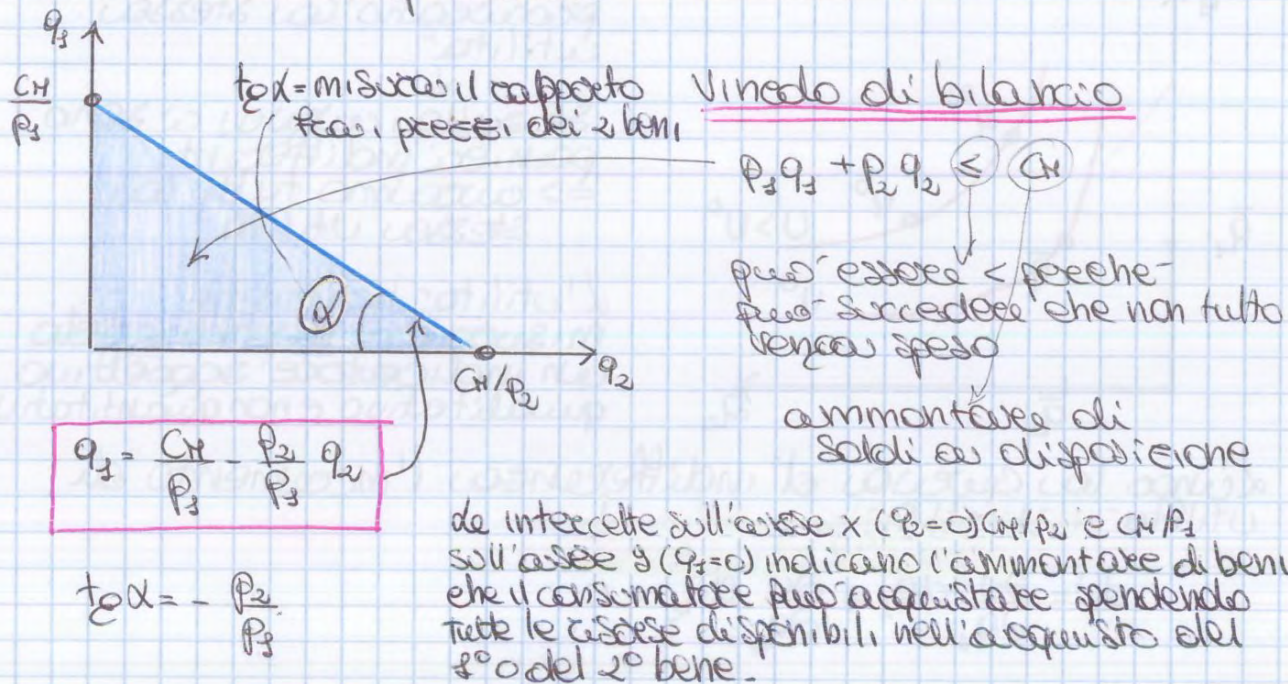 q₁
CM/p₁
tgα = misura il rapporto
fra i prezzi dei 2 beni
Vincolo di bilancio
p₁q₁ + p₂q₂ ≤ CM
può essere < perché
può succedere che non tutto
venga speso
α
CM/p₂
q₂
ammontare di
soldi a disposizione
q₁ = CM/p₁ - p₂/p₁ q₂
tgα = - p₂/p₁
Le intercette sull'asse x (q₂=0) CM/p₂ e CM/p₁
sull'asse y (q₁=0) indicano l'ammontare di beni
che il consumatore può acquistare spendendo
tutte le risorse disponibili nell'acquisto del
1° o del 2° bene.